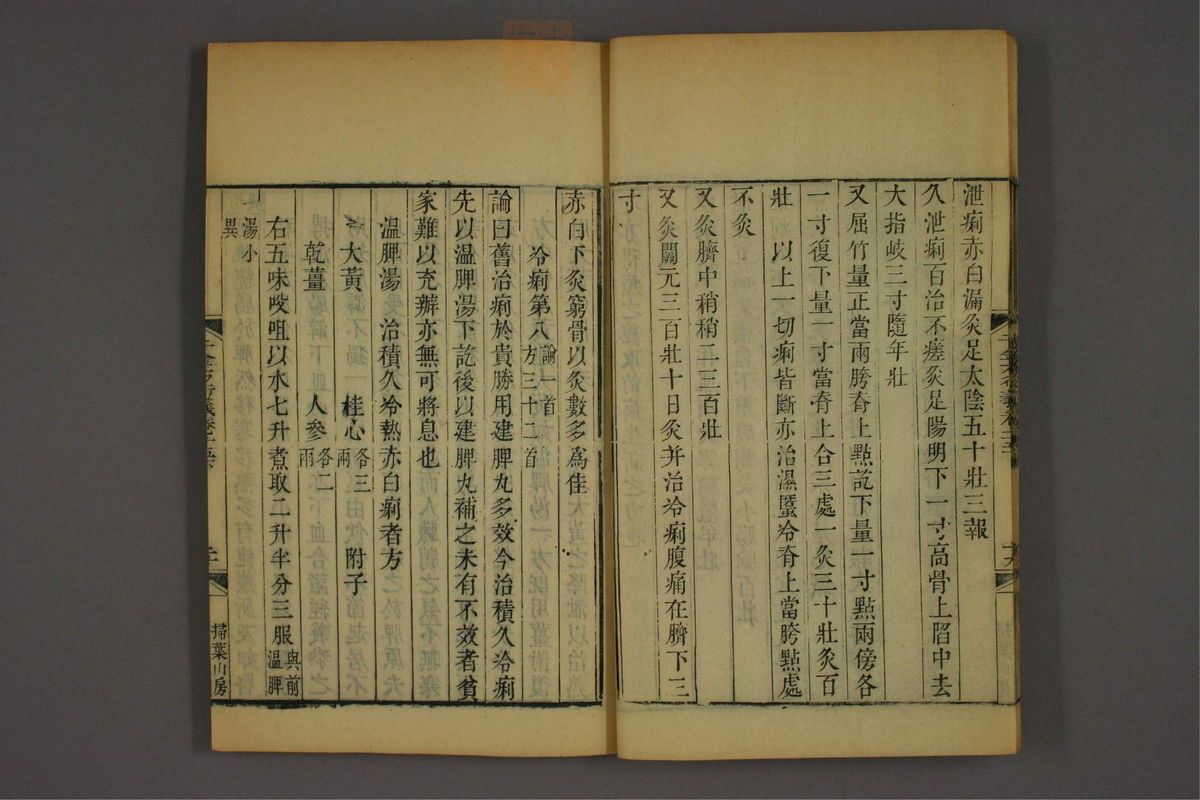 泄痢赤白漏灸足太陰五十壯三報
久泄痢百治不瘥灸足陽明下一寸高骨上陷中去
大指岐三寸隨年壯
又屈竹量正當兩胯脊上點訖下量一寸點兩傍各
一寸復下量一寸當脊上合三處一灸三十壯灸百
壯以上一切痢皆斷亦治濕䘌冷脊上當胯點處
不灸
又灸臍中稍稍二三百壯
又灸關元三百壯十日灸并治冷痢腹痛在臍下三
寸
赤白下灸窮骨以灸數多爲佳
冷痢第八論一首方三十二首
論曰舊治痢於貴勝用建脾丸多效今治積久冷痢
先以溫脾湯下訖後以建脾丸補之未有不效者貧
家難以充辦亦無可將息也
溫脾湯 治積久冷熱赤白痢者方
大黃 桂心各三兩 附子
乾薑 人參各二兩
右五味㕮咀以水七升煮取二升半分三服與前溫脾
湯小異
千金方衍義卷十五
掃葉山房